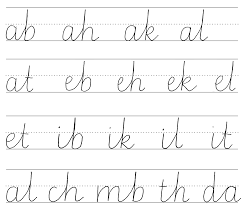 ab ah ak al
at eb eh ek el
et ib ik il it
al ch mb th da